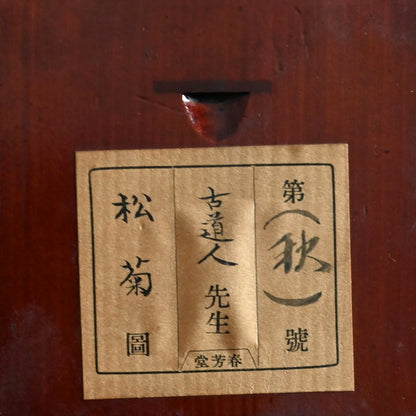 第(秋)號
古道人先生
松菊圖
春芳堂